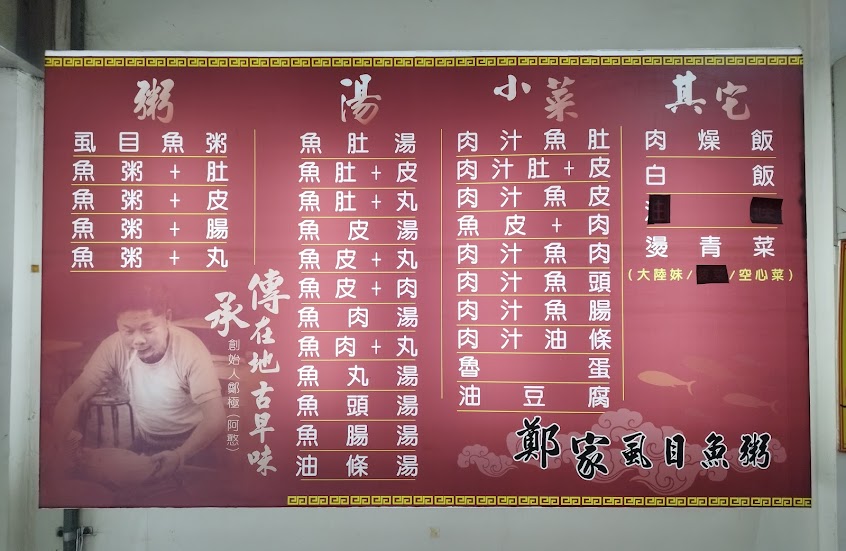 粥
虱目魚粥
魚粥+肚
魚粥+皮
魚粥+腸
魚粥+丸
湯
魚肚湯
魚肚+皮
魚肚+丸
魚皮湯
魚皮+丸
魚皮+肉
魚肉湯
魚肉+丸
魚丸湯
魚頭湯
魚腸湯
油條湯
小菜
肉汁魚肚
肉汁肚+皮
肉汁魚皮
魚皮+肉
肉汁魚肉
肉汁魚頭
肉汁魚腸
肉汁油條
魯蛋
油豆腐
其它
肉燥飯
白飯
燙青菜
(大陸妹/ /空心菜)
傳承在地古早味
創始人鄭極(阿憨)
鄭家虱目魚粥